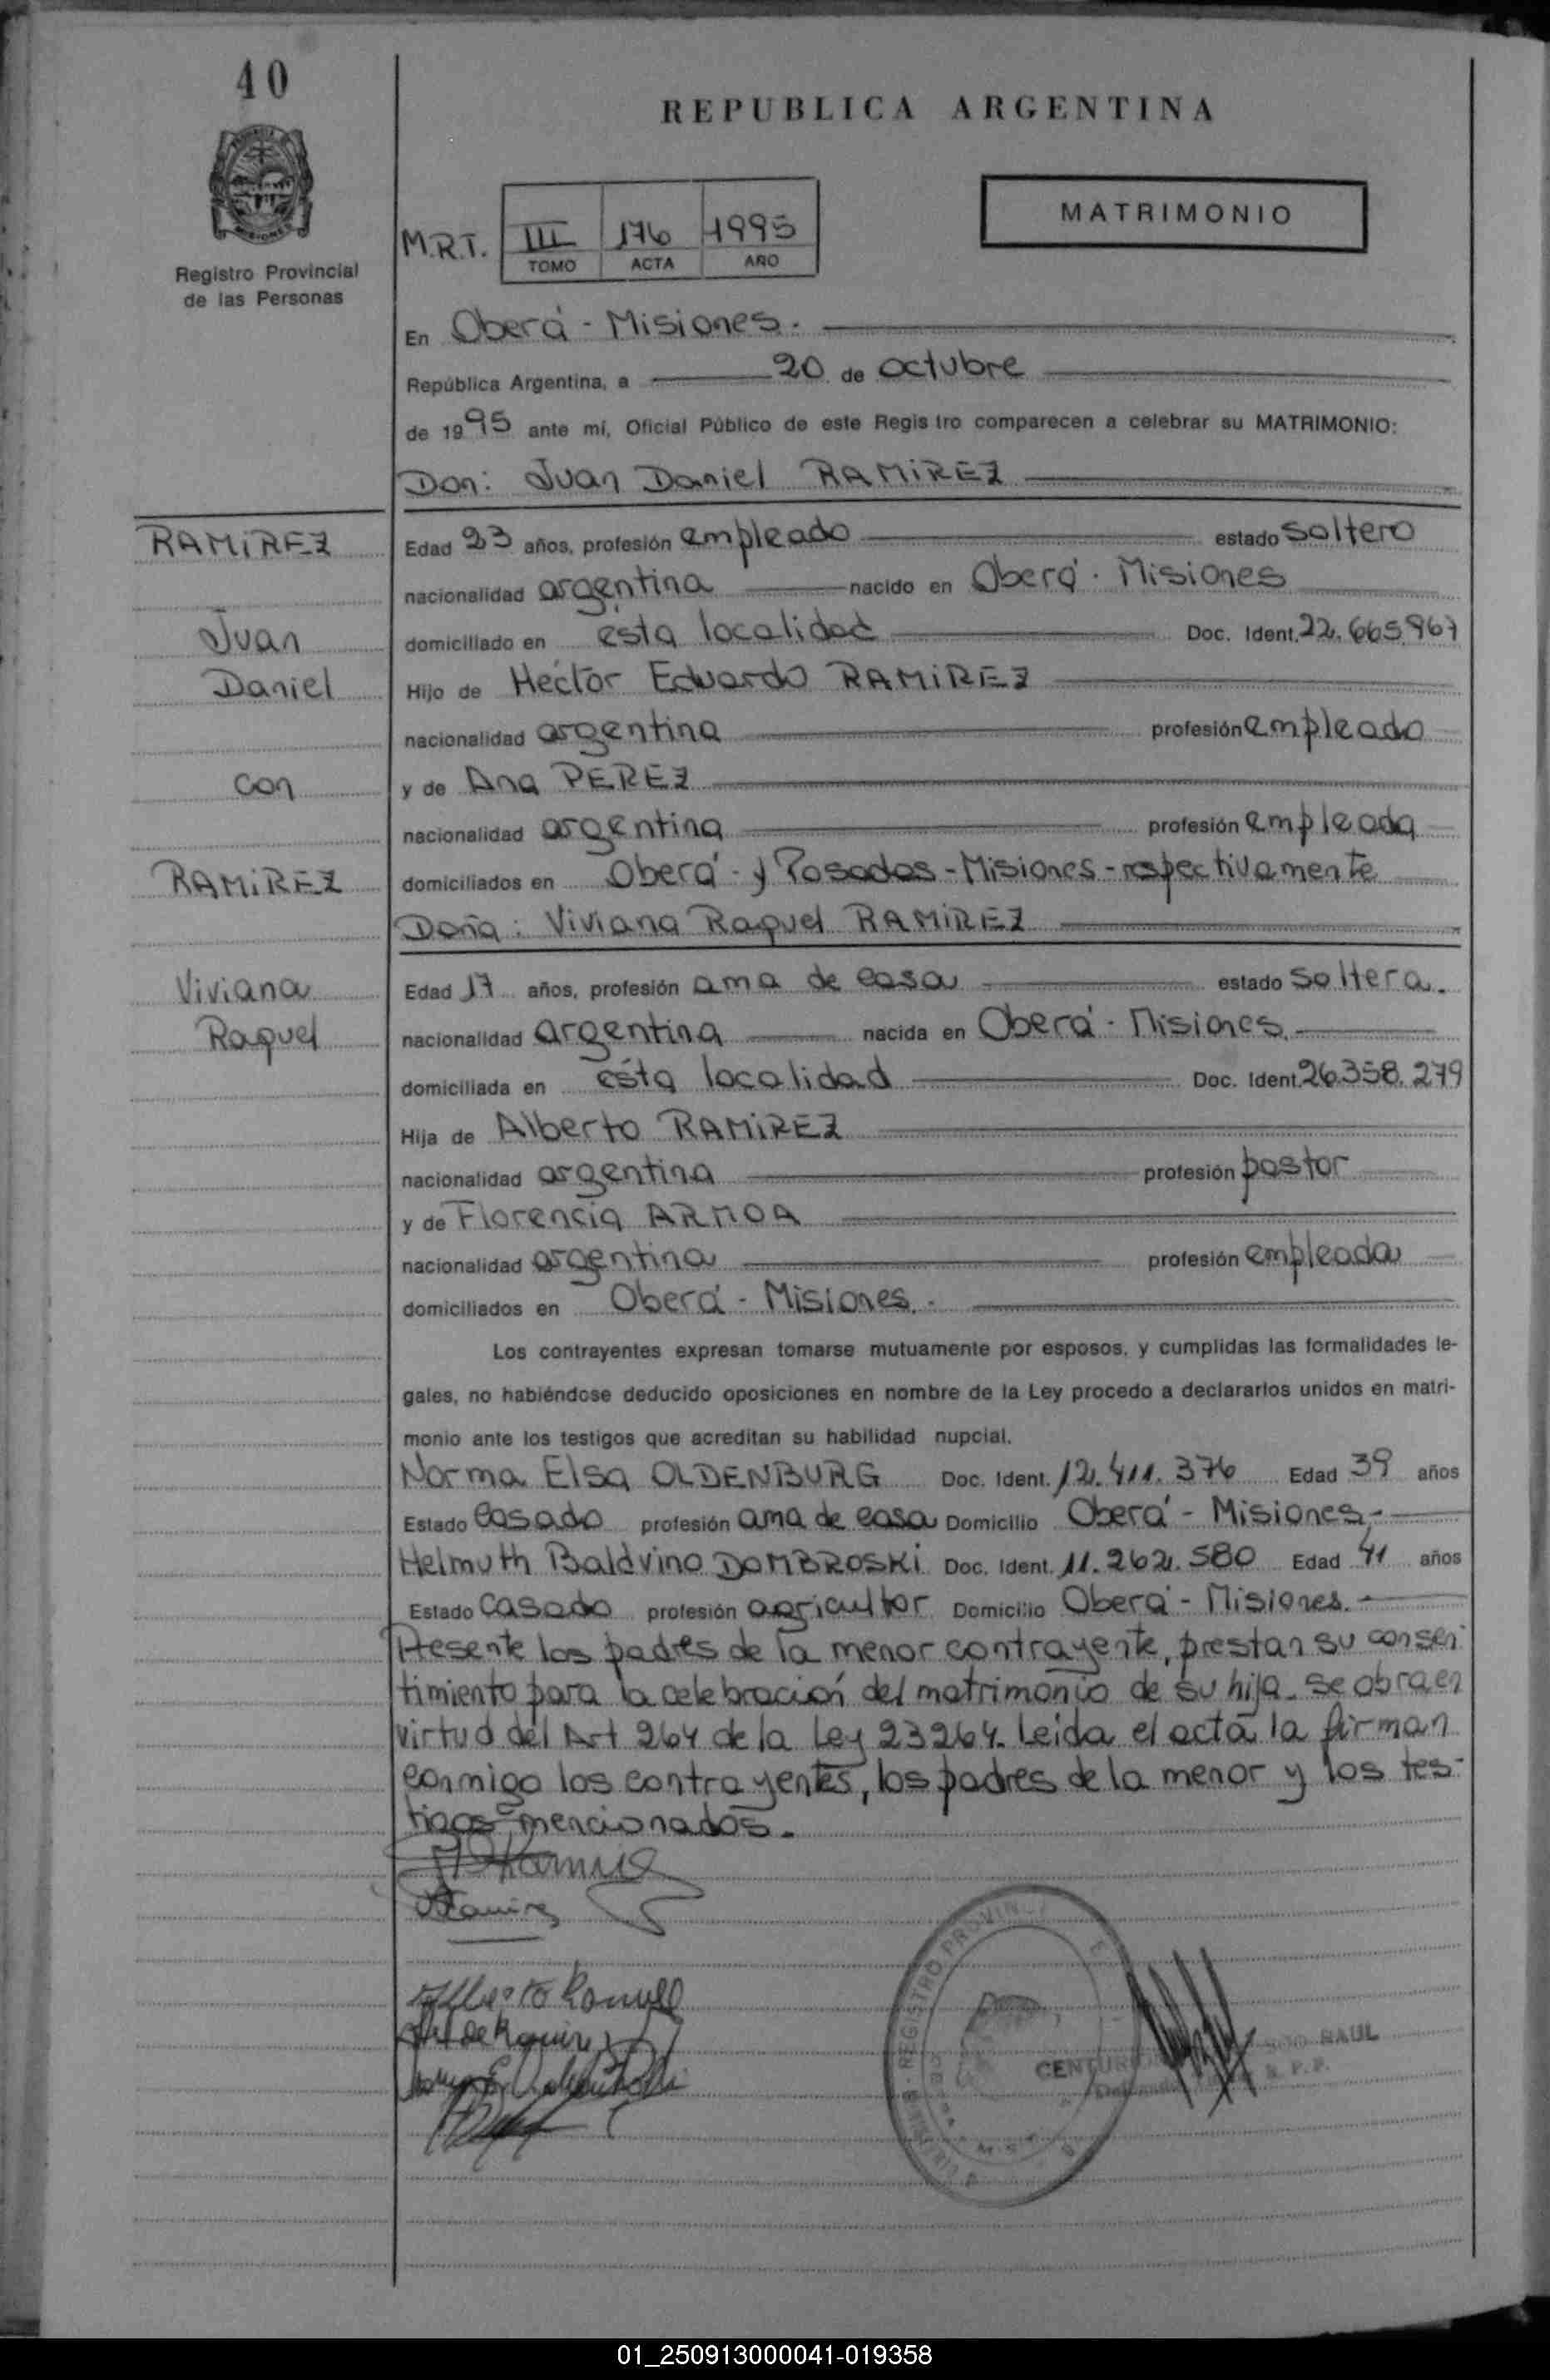 40
REPUBLICA ARGENTINA
MATRIMONIO
M.R.T. III 176 1995
TOMO ACTA AÑO
Registro Provincial
de las Personas
En Oberá - Misiones.
República Argentina, a 20 de octubre
de 1995 ante mí, Oficial Público de este Registro comparecen a celebrar su MATRIMONIO:
Don: Juan Daniel RAMIREZ
RAMIREZ
Edad 23 años, profesión empleado estado soltero
nacionalidad argentina nacido en Oberá - Misiones
Juan
domiciliado en ésta localidad Doc. Ident. 22.665.967
Daniel
Hijo de Héctor Eduardo RAMIREZ
nacionalidad argentina profesión empleado
con
y de Ana PEREZ
nacionalidad argentina profesión empleada
RAMIREZ
domiciliados en Oberá - y Posadas - Misiones - respectivamente
Doña: Viviana Raquel RAMIREZ
Viviana
Edad 17 años, profesión ama de casa estado soltera.
Raquel
nacionalidad argentina nacida en Oberá - Misiones.
domiciliada en ésta localidad Doc. Ident. 26.358.279
Hija de Alberto RAMIREZ
nacionalidad argentina profesión pastor
y de Florencia ARMOA
nacionalidad argentina profesión empleada
domiciliados en Oberá - Misiones.
Los contrayentes expresan tomarse mutuamente por esposos, y cumplidas las formalidades le-
gales, no habiéndose deducido oposiciones en nombre de la Ley procedo a declararlos unidos en matri-
monio ante los testigos que acreditan su habilidad nupcial.
Norma Elsa OLDENBURG Doc. Ident. 12.411.376 Edad 39 años
Estado casado profesión ama de casa Domicilio Oberá - Misiones.-
Helmuth Baldvino DOMBROSKI Doc. Ident. 11.262.580 Edad 41 años
Estado casado profesión agricultor Domicilio Oberá - Misiones.-
Presente los padres de la menor contrayente, prestan su consen-
timiento para la celebración del matrimonio de su hija. se obra en
virtud del Art 264 de la Ley 23264. Leida el acta la firman
conmigo los contrayentes, los padres de la menor y los tes-
tigos mencionados.
Alberto Ramirez
REGISTRO PROVINC
RAUL
01_250913000041-019358